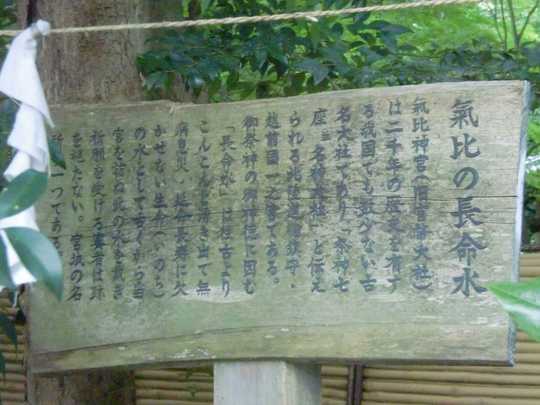 氣比の長命水
氣比神宮(旧官幣大社)
は二千年の歴史を有す
る我国でも数少ない古
名大社であり「祭神七
座並名神大社」と伝え
られる北陸道総鎮守、
越前国一之宮である。
御祭神の御神徳に因む
「長命水」は往古より
こんこんと湧き出て無
病息災、延命長寿に欠
かせない生命(いのち)
の水として古くから当
宮を訪ね此の水を戴き
祈願を受ける参者は跡
を絶たない。宮域の名
一つである